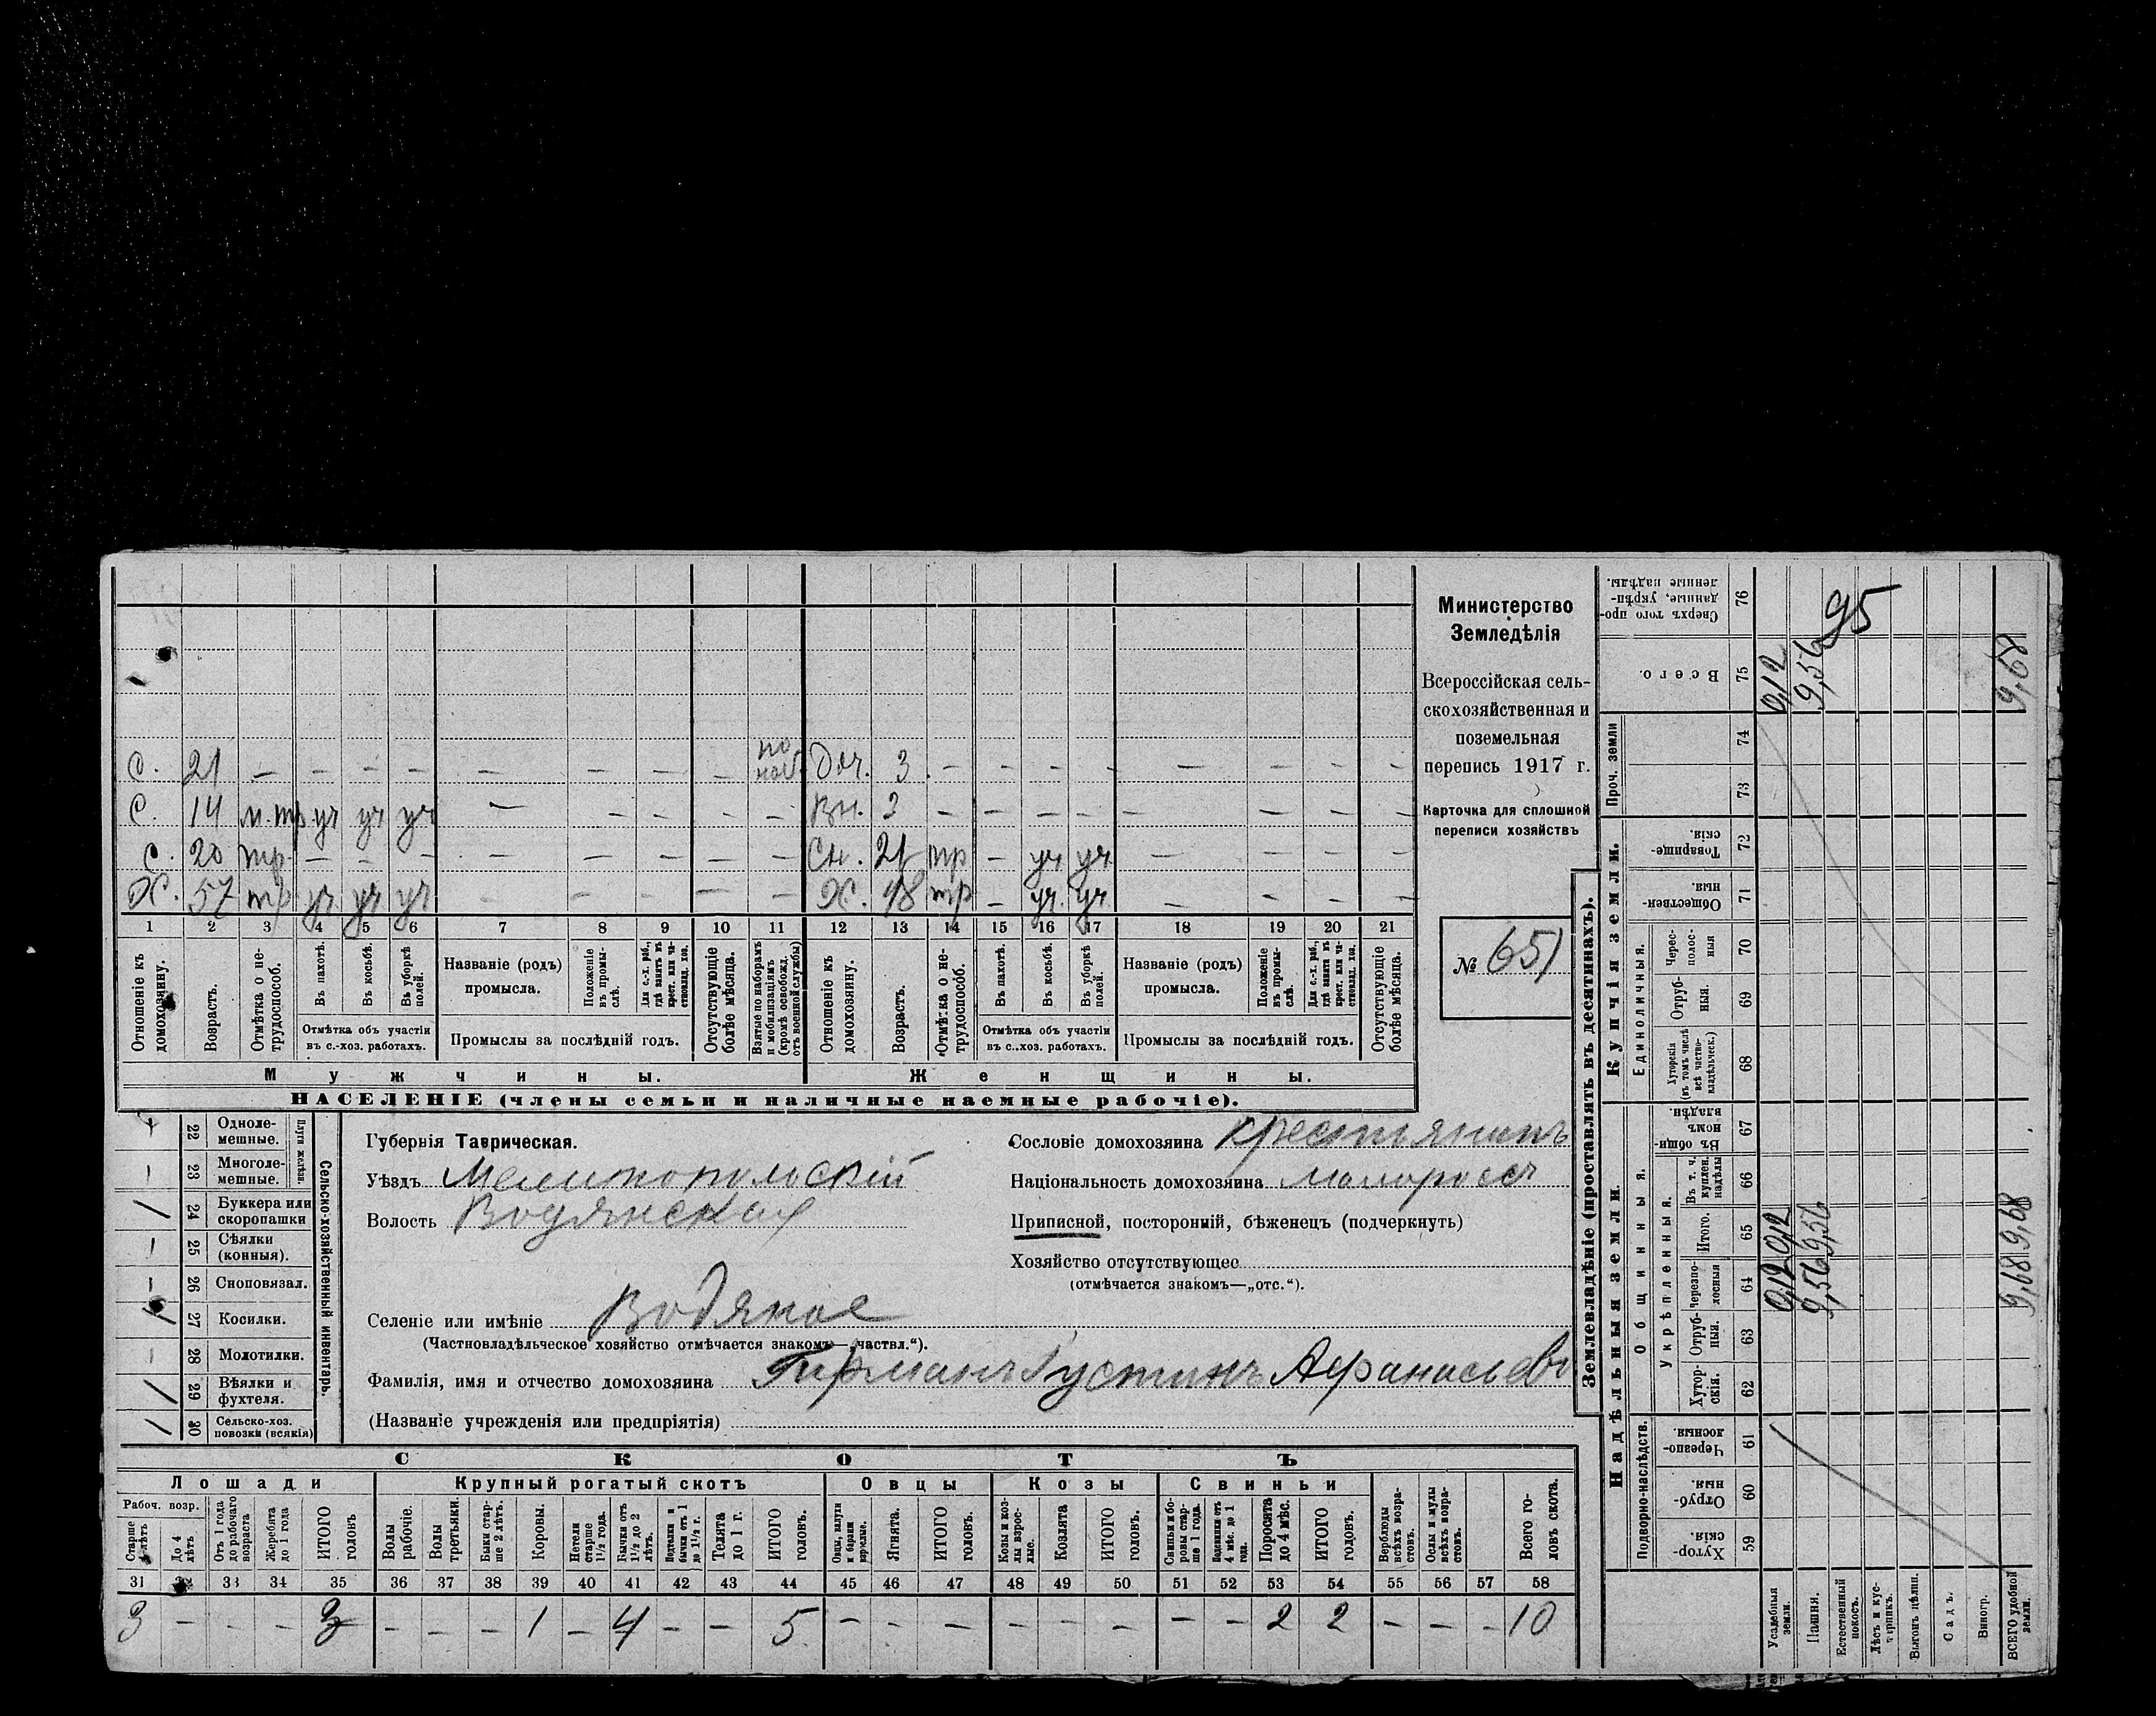 С. 21 — — — — — — — — по моб. Доч. 3 — — — — — — — —
С. 14 н. тр уч уч уч — — — — — Вн. 3 — — — — — — — —
С. 20 тр — — — — — — — — Сн. 21 тр — уч уч — — — —
Х. 57 тр уч уч уч — — — — — Х. 48 тр — уч. уч — — — —
1 2 3 4 5 6 7 8 9 10 11 12 13 14 15 16 17 18 19 20 21
Отношеніе къ домохозяину.
Возрастъ.
Отмѣтка о не-трудоспособ.
Въ пахотѣ.
Въ косьбѣ.
Въ уборкѣ полей.
Отмѣтка объ участіи
въ с.-хоз. работахъ.
Названіе (родъ)
промысла.
Положеніе въ промы-слѣ.
Для с.-х. раб., гдѣ занятъ въ крест. или ча-стновлад. хоз.
Промыслы за послѣдній годъ.
Отсутствующіе болѣе мѣсяца.
Взятые по наборамъ и мобилизаціямъ (кромѣ освобожд. отъ военной службы)
Отношеніе къ домохозяину.
Возрастъ.
Отмѣтка о не-трудоспособ.
Въ пахотѣ.
Въ косьбѣ.
Въ уборкѣ полей.
Отмѣтка объ участіи
въ с.-хоз. работахъ.
Названіе (родъ)
промысла.
Положеніе въ промы-слѣ.
Для с.-х. раб., гдѣ занята въ крест. или ча-стновлад. хоз.
Промыслы за послѣдній годъ.
Отсутствующіе болѣе мѣсяца.
Мужчины. Женщины.
НАСЕЛЕНІЕ (члены семьи и наличные наемные рабочіе).
Министерство
Земледѣлія
Всероссійская сель-
скохозяйственная и
поземельная
перепись 1917 г.
Карточка для сплошной
переписи хозяйствъ
№ 651
Сельско-хозяйственный инвентарь.
Плуги желѣзн.
— 22 Одноле-мешные.
— 23 Многоле-мешные.
/ 24 Буккера или скоропашки
— 25 Сѣялки (конныя).
— 26 Сноповязал.
/ 27 Косилки.
— 28 Молотилки.
/ 29 Вѣялки и фухтеля.
/ 30 Сельско-хоз. повозки (всякія)
Губернія Таврическая.
Уѣздъ Мелитопольскій
Волость Водянская
Селеніе или имѣніе Водяное
(Частновладѣльческое хозяйство отмѣчается знакомъ—„частвл.“).
Фамилія, имя и отчество домохозяина Гирманъ Густинъ Афанасьевъ
(Названіе учрежденія или предпріятія)
Сословіе домохозяина крестьянинъ
Національность домохозяина малороссъ
Приписной, посторонній, бѣженецъ (подчеркнуть)
Хозяйство отсутствующее
(отмѣчается знакомъ—„отс.“).
СКОТЪ
Лошади Крупный рогатый скотъ Овцы Козы Свиньи
Рабоч. возр.
Старше 4 лѣтъ
До 4 лѣтъ
Отъ 1 года до рабочаго возраста
Жеребята до 1 года
ИТОГО головъ
Волы рабочіе.
Волы третьяки.
Быки стар-ше 2 лѣтъ.
Коровы.
Нетели старше 1½ года.
Бычки отъ 1½ до 2 лѣтъ.
Подтелки и бычки отъ 1 до 1½ г.
Телята до 1 г.
ИТОГО головъ.
Овцы, валухи и бараны взрослые.
Ягнята.
ИТОГО головъ.
Козы и коз-лы взрос-лые.
Козлята
ИТОГО головъ.
Свиньи и бо-ровы стар-ше 1 года.
Подсвинки отъ 4 мѣс. до 1 года.
Поросята до 4 мѣс.
ИТОГО головъ.
Верблюды всѣхъ возра-стовъ.
Ослы и мулы всѣхъ возра-стовъ.
Всего го-ловъ скота.
31 32 33 34 35 36 37 38 39 40 41 42 43 44 45 46 47 48 49 50 51 52 53 54 55 56 57 58
3 — — — 3 — — — 1 — 4 — — 5 — — — — — — — — 2 2 — — — 10
Землевладѣніе (проставлять въ десятинахъ).
Надѣльныя земли. Купчія земли. Проч. земли
Подворно-наслѣдств. Общинныя. Укрѣпленныя. Единоличныя.
Хутор-скія. 59
Отруб-ныя. 60
Черезпо-лосныя 61
Хутор-скія. 62
Отруб-ныя. 63
Черезпо-лосныя 64
Итого. 65
Въ т. ч. куплен. надѣлы 66
Въ общи-номъ владѣн. 67
Хуторскія (въ томъ числѣ всѣ частно-владѣльческ.) 68
Отруб-ныя. 69
Черес-полос-ныя 70
Обществен-ныя. 71
Товарище-скія. 72
73
74
Всего. 75
Сверхъ того про-данные, укрѣп-ленные надѣлы. 76
Усадебныя земли. 0,12 0,12 0,12
Пашня. 9,56 9,56 9,56
Естественный покосъ.
Лѣсъ и кус-тарникъ.
Выгонъ цѣлин.
Садъ.
Виногр.
ВСЕГО удобной земли. 9,68 9,68 9,68
95